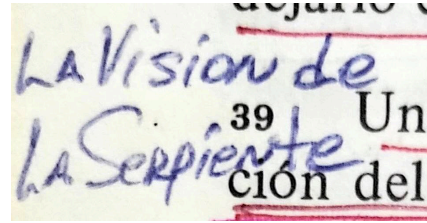 La Vision de
La Serpiente
39 Un
ción del